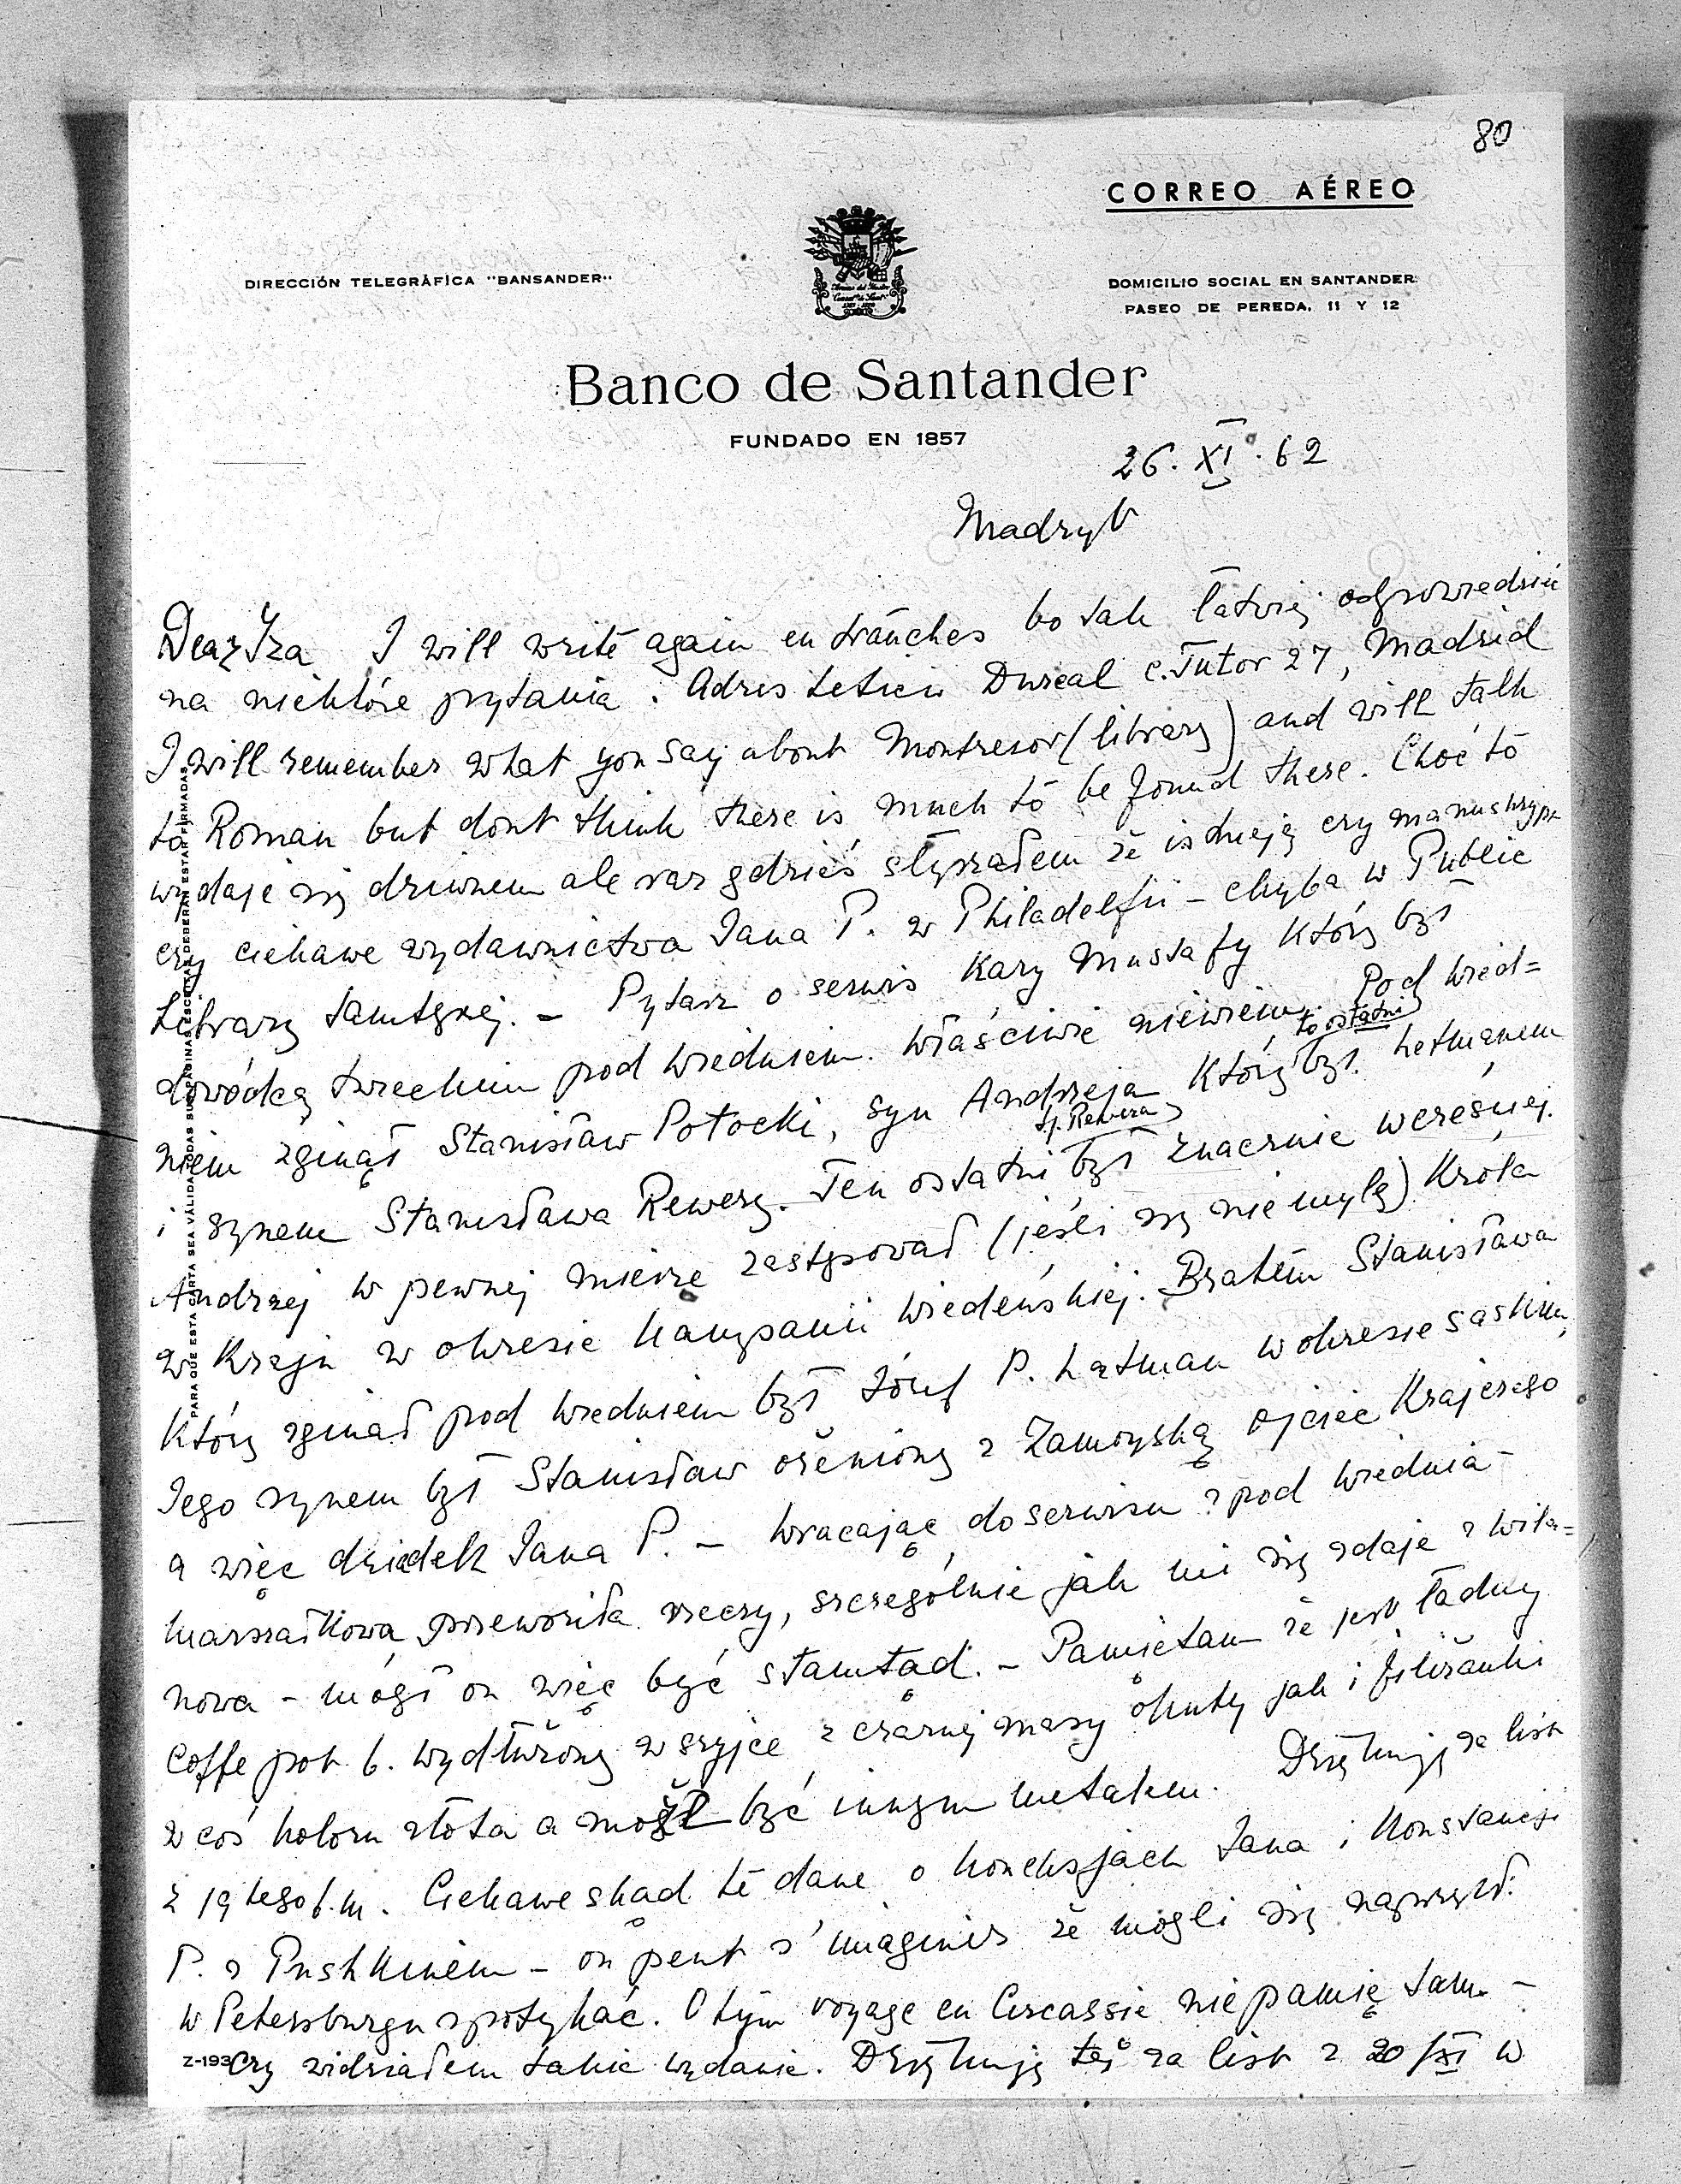 80
CORREO AÉREO
DIRECCIÓN TELEGRÁFICA "BANSANDER"
DOMICILIO SOCIAL EN SANTANDER
PASEO DE PEREDA, 11 Y 12
Banco de Santander
FUNDADO EN 1857
26. XI. 62
Madryt
Dear Iza I will write again en tranches bo tak łatwiej odpowiedzieć
na niektóre pytania. Adres Leticii Durcal c. Tutor 27, Madrid
I will remember what you say about Montresor (library) and will talk
to Roman but dont think there is much to be found there. Choć to
wydaje się dziwnem ale raz gdzieś słyszałem że istnieją czy manuskrypt
czy ciekawe wydawnictwa Jana P. w Philadelfii - chyba w Public
Library tamtejszej. - Pytasz o serwis Kary Mustafy który był
dowódcą tureckim pod Wiedniem. Właściwie niewiem. Pod Wied=
niem zginął Stanisław Potocki, syn Andrzeja który to ostatni był hetmanem
i synem Stanisława Rewery. Ten ostatni tj. Rewera był znacznie wcześniej.
Andrzej w pewnej mierze zastępował (jeśli się nie mylę) Króla
w Kraju w okresie kampanii wiedeńskiej. Bratem Stanisława
który zginął pod Wiedniem był Józef P. hetman w okresie saskim,
Jego synem był Stanisław ożeniony z Zamoyską ojciec Krajczego
a więc dziadek Jana P. - Wracając do serwisu z pod Wiednia -
marszałkowa przewoziła rzeczy, szczególnie jak mi się zdaje z Wila=
nowa - mógł on więc być stamtąd. - Pamiętam że jest ładny
coffe pot b. wydłużony w szyjce z czarnej masy okuty jak i filiżanki
w coś koloru złota a może być innym metalem. Dziękuję za list
z 19 tego b.m. Ciekawe skąd te dane o koneksjach Jana i Konstancji
P. z Pushkinem - on peut s'imaginer że mogli się naprzykł.
w Petersburgu spotykać. O tym voyage en Circassie nie pamiętam -
czy widziałem takie wydanie. Dziękuję też za list z 20/XI w
Z-193
PARA QUE ESTA CARTA SEA VÁLIDA TODAS SUS PÁGINAS ESCRITAS DEBERÁN ESTAR FIRMADAS